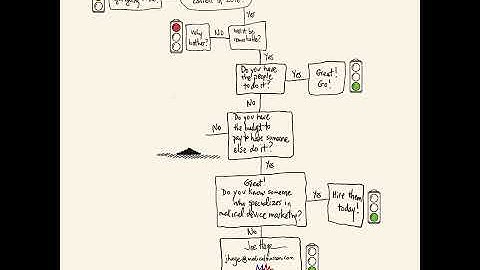 Yes
Why
bother?
NO
Will it be
remarkable?
Yes
Do you have
the people
to do it?
Yes
Great!
Go!
NO
Do you have
the budget to
pay to have someone
else do it?
NO
Yes
Great!
Do you know someone
who specializes in
medical device marketing?
Yes
Hire them
today!
No
Joe Hage